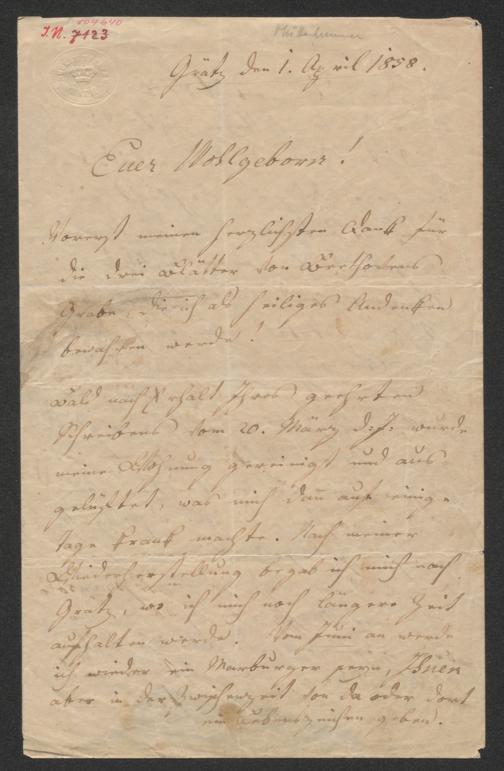 104640
I.N. 7123
Grätz den 1. April 1858.
Euer Wohlgeborn!
Vorerst meinen herzlichsten Dank für
die drei Blätter von Beethovens
Grabe, die ich als heiliges Andenken
bewahren werde!
Bald nach Erhalt Ihres geehrten
Schreibens vom 20. März d: J: wurde
meine Wohnung gereinigt und aus
gelüftet, was mich dan auf einige
Tage krank machte. Nach meiner
Wiederherstellung begab ich mich nach
Gratz, wo ich mich noch längere Zeit
aufhalten werde. Vom Juni an werde
ich wieder ein Marburger seyn, Ihnen
aber in der Zwischenzeit von da oder dort
ein Lebenszeichen geben.